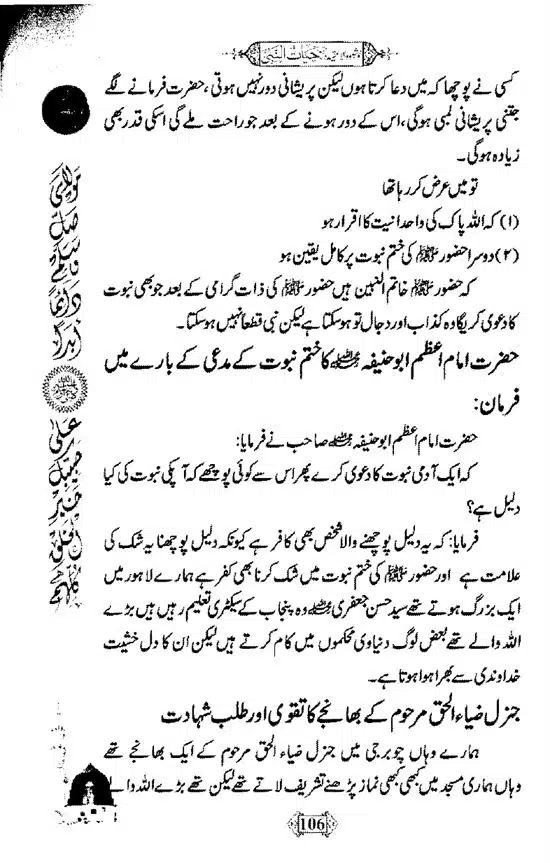 حیات النبی ﷺ
کسی نے پوچھا کہ میں دعا کرتا ہوں لیکن پریشانی دور نہیں ہوتی، حضرت فرمانے لگے
جتنی پریشانی لمبی ہوگی، اس کے دور ہونے کے بعد جو راحت ملے گی اسکی قدر بھی
زیادہ ہوگی۔
تو میں عرض کر رہا تھا
(۱) کہ اللہ پاک کی واحدانیت کا اقرار ہو
(۲) دوسرا حضور ﷺ کی ختم نبوت پر کامل یقین ہو
کہ حضور ﷺ خاتم النبیین ہیں حضور ﷺ کی ذات گرامی کے بعد جو بھی نبوت
کا دعوی کریگا وہ کذاب اور دجال تو ہو سکتا ہے لیکن نبی قطعاً نہیں ہو سکتا۔
حضرت امام اعظم ابو حنیفہ رحمۃ اللہ علیہ کا ختم نبوت کے مدعی کے بارے میں
فرمان:
حضرت امام اعظم ابو حنیفہ رحمۃ اللہ علیہ صاحب نے فرمایا:
کہ ایک آدمی نبوت کا دعوی کرے پھر اس سے کوئی پوچھے کہ آپکی نبوت کی کیا
دلیل ہے؟
فرمایا: کہ یہ دلیل پوچھنے والا شخص بھی کافر ہے کیونکہ دلیل پوچھنا یہ شک کی
علامت ہے اور حضور ﷺ کی ختم نبوت میں شک کرنا بھی کفر ہے ہمارے لاہور میں
ایک بزرگ ہوتے تھے سید حسن جعفری رحمۃ اللہ علیہ وہ پنجاب کے سیکٹری تعلیم رہیں ہیں بڑے
اللہ والے تھے بعض لوگ دنیاوی محکموں میں کام کرتے ہیں لیکن ان کا دل خشیت
خداوندی سے بھرا ہوا ہوتا ہے۔
جنرل ضیاء الحق مرحوم کے بھانجے کا تقوی اور طلب شہادت
ہمارے وہاں چوبرجی میں جنرل ضیاء الحق مرحوم کے ایک بھانجے تھے
وہاں ہماری مسجد میں کبھی کبھی نماز پڑھنے تشریف لاتے تھے لیکن تھے بڑے اللہ والے
106
مولای
صل
وسلم
دائما
ابدا
علی
حبیبک
خیر
الخلق
کلھم